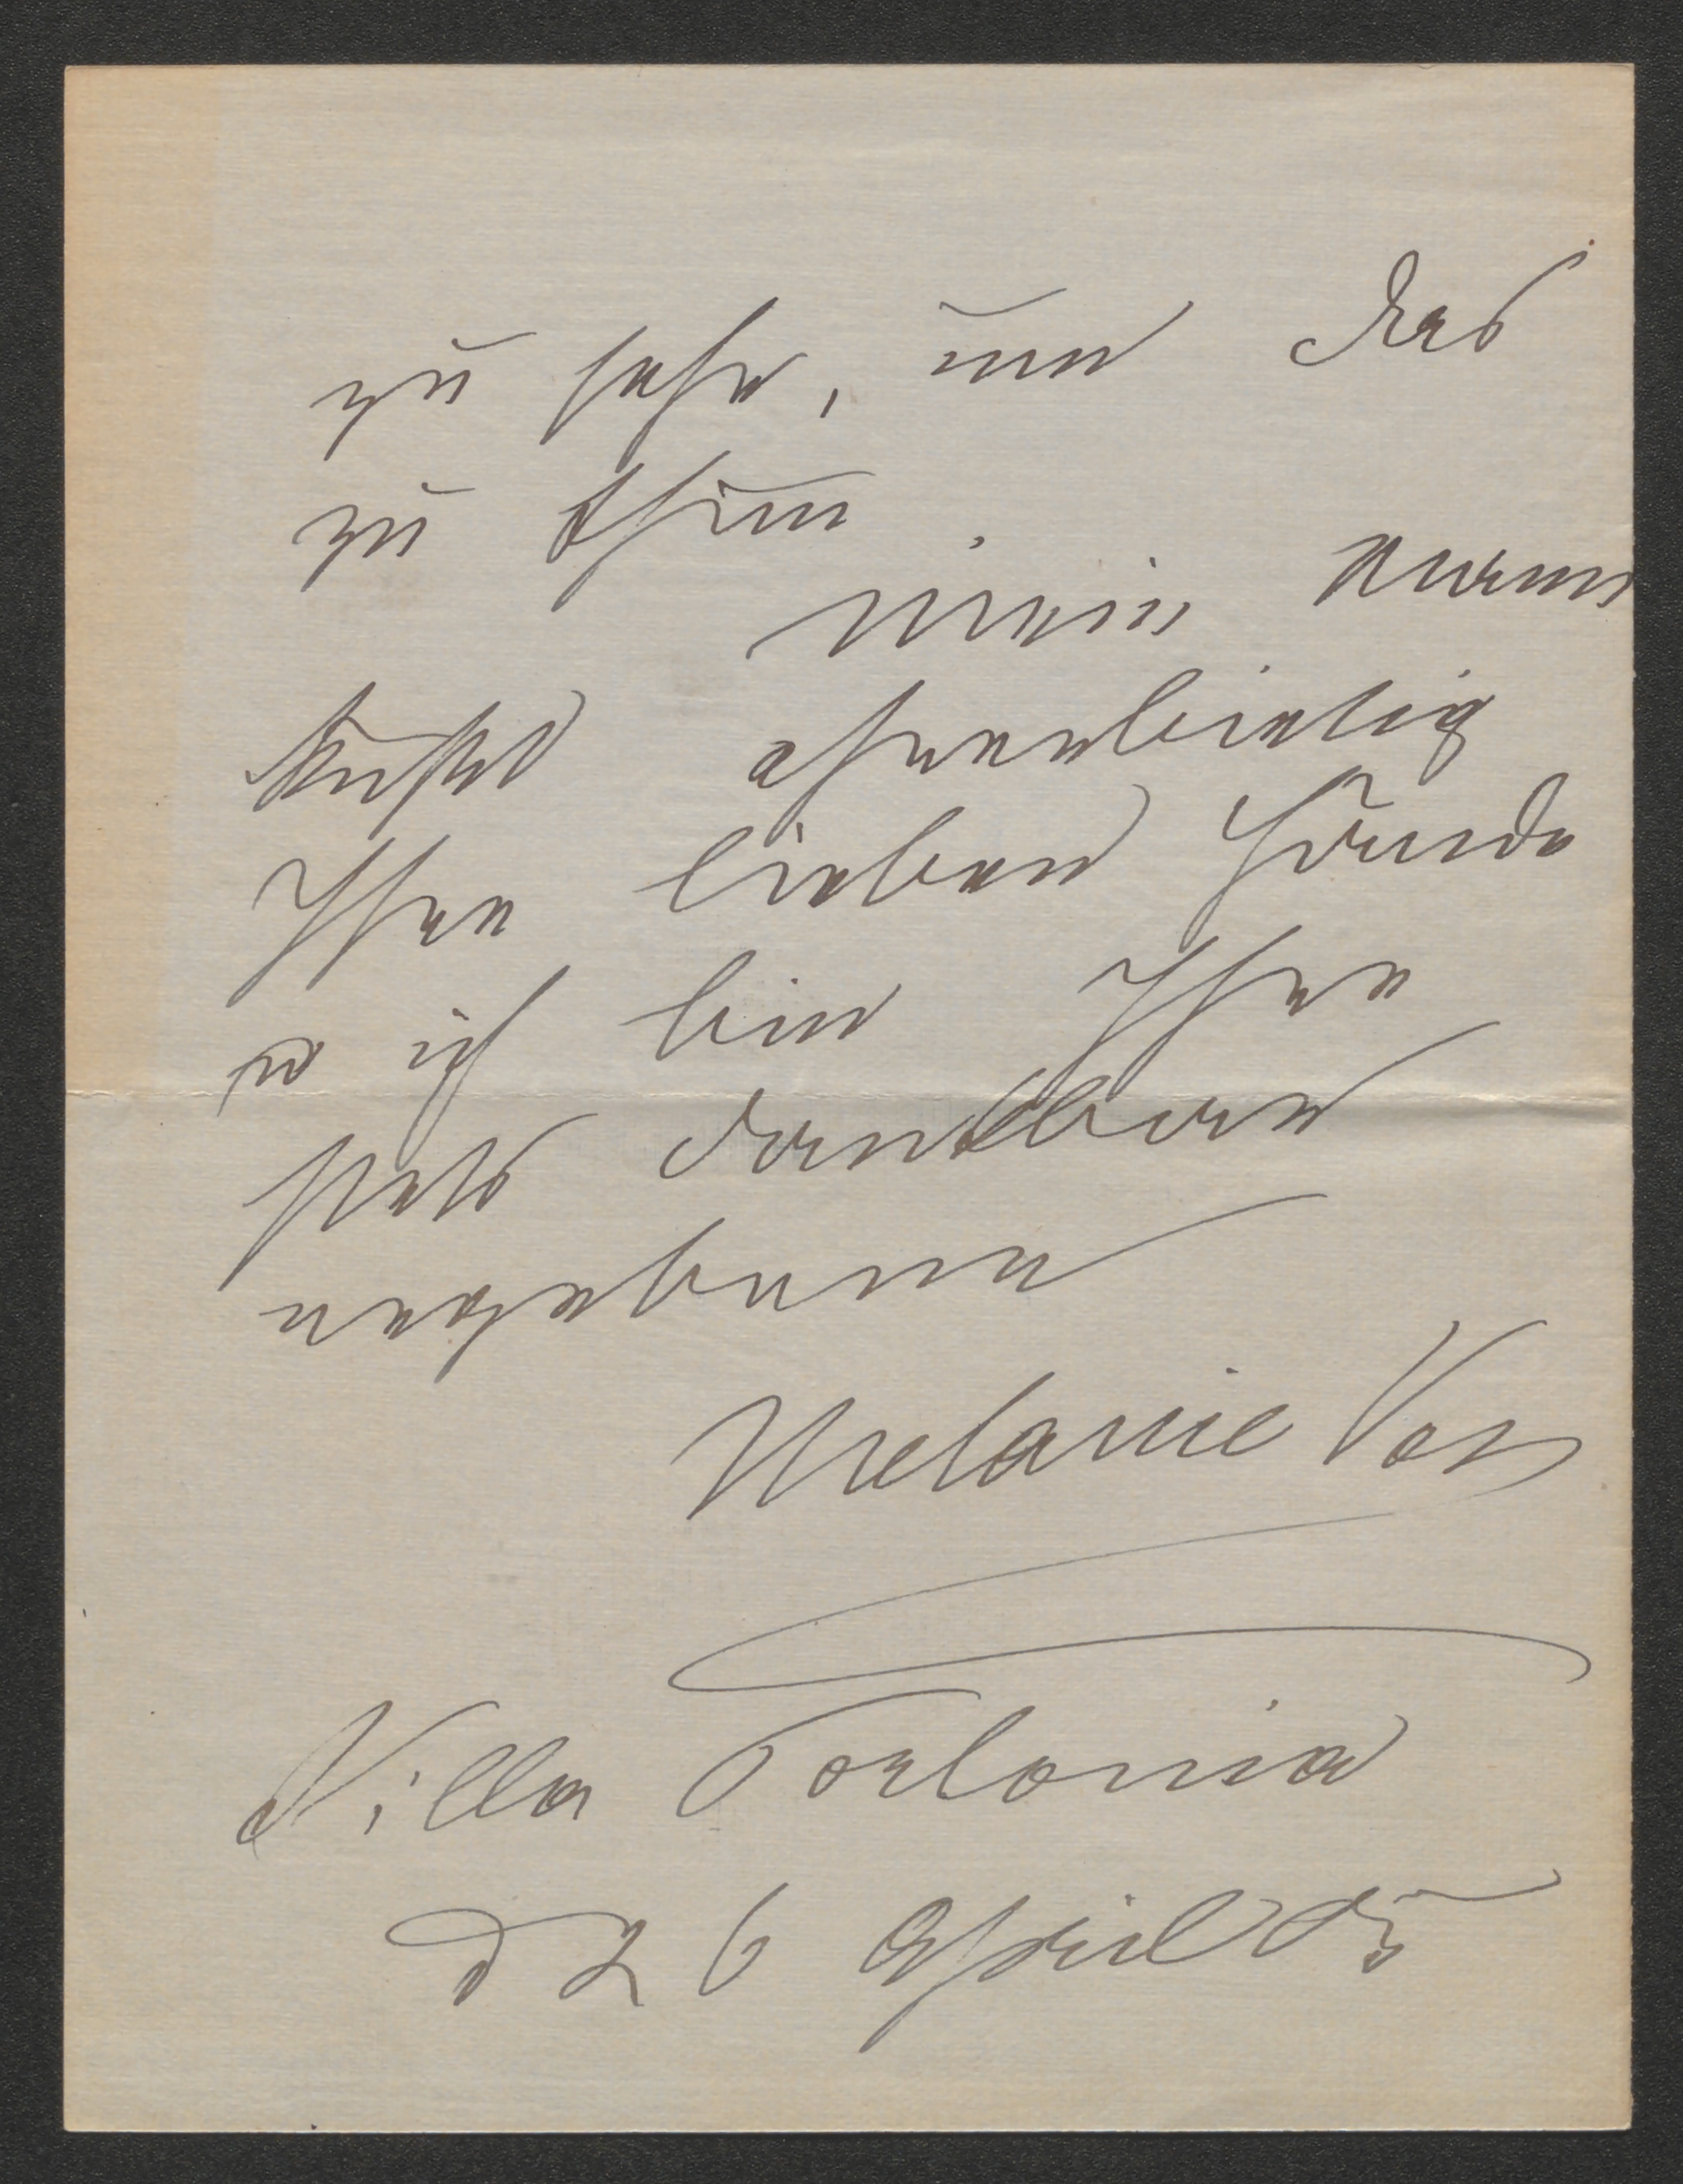 zu sehr, um das
zu thun.
Mein Mann
küßt ehrerbietig
Ihre lieben Hände
u ich bin Ihre
stets dankbare
ergebene
Melanie Vos
Villa Torlonia
d 26 April 85